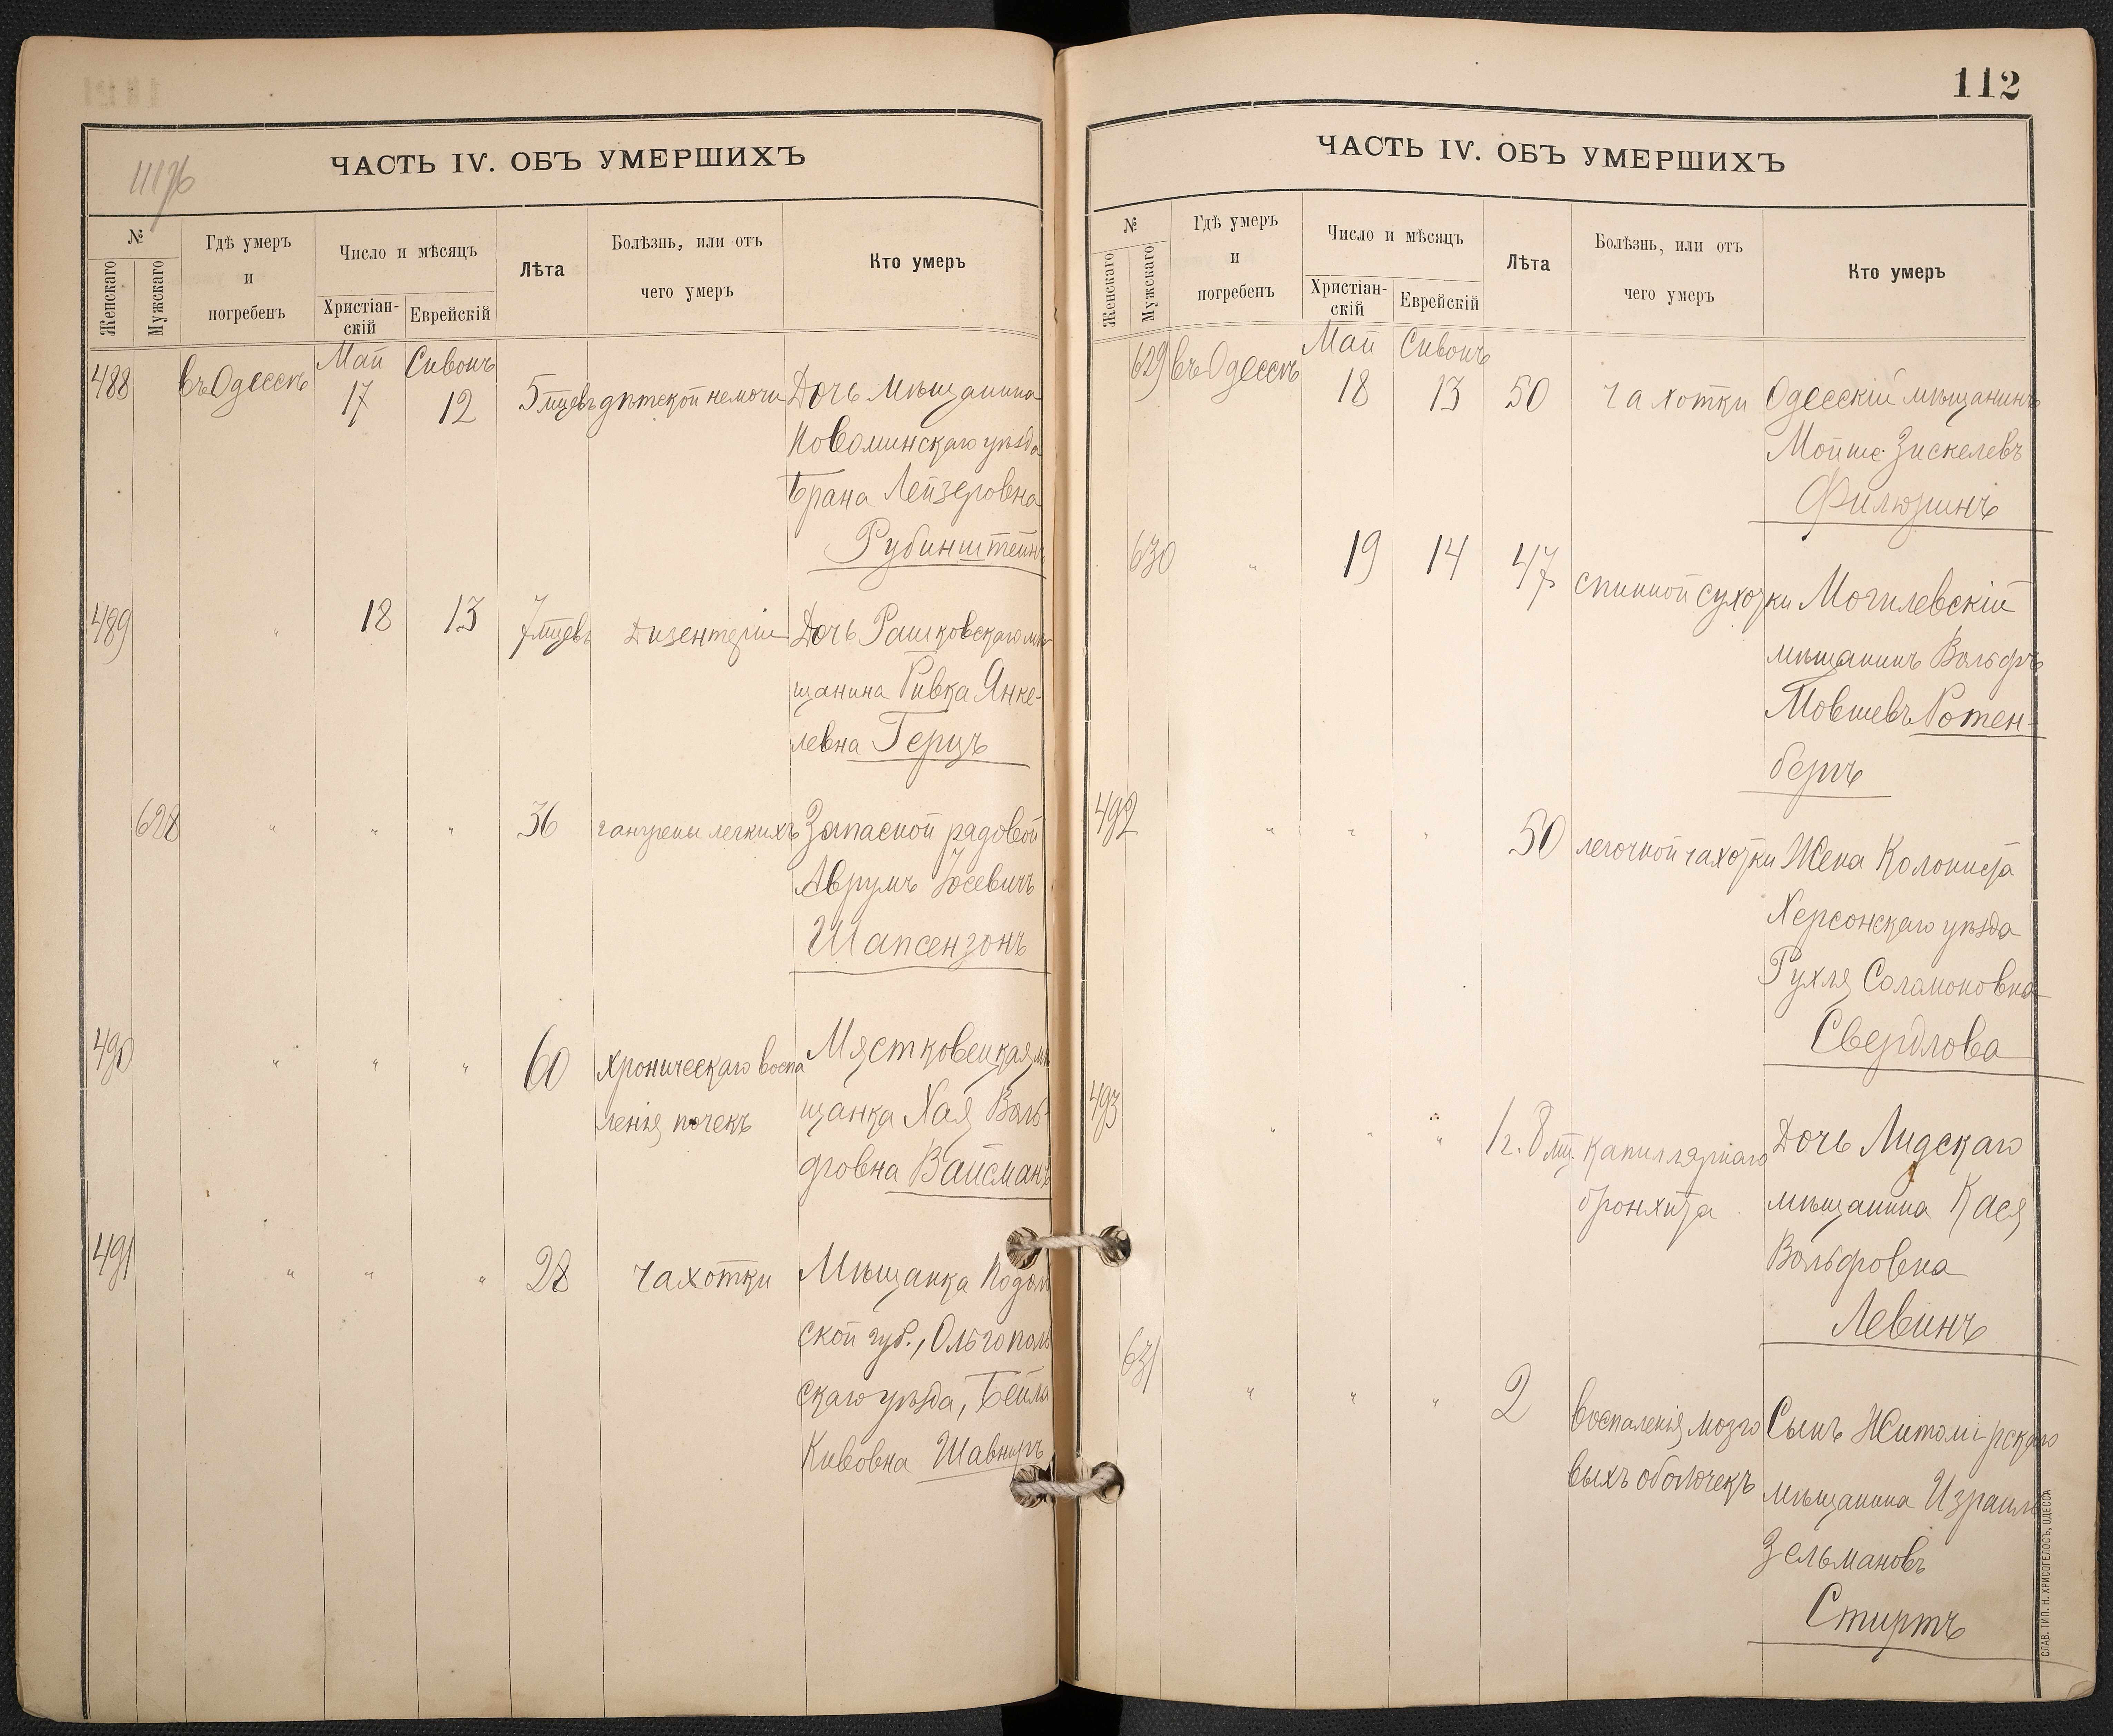 ЧАСТЬ IV. ОБЪ УМЕРШИХЪ
№
Женскаго
Мужскаго
Гдѣ умеръ
и
погребенъ
Число и мѣсяцъ
Христіан-
скій
Еврейскій
Лѣта
Болѣзнь, или отъ
чего умеръ
Кто умеръ
488
въ Одессѣ
Май
17
Сивонъ
12
5 мцевъ
дѣтской немочи
Дочь мѣщанина
Новоминскаго уѣзда
Брана Лейзеровна
Рубинштейнъ
489
"
18
13
7 мцевъ
Дизентеріи
Дочь Рашковскаго мѣ-
щанина Ривка Янке-
левна Герцъ
628
"
"
"
36
гангрены легкихъ
Запасной рядовой
Аврумъ Іосевичъ
Шапсензонъ
490
"
"
"
60
хроническаго воспа
ленія почекъ
Мястковецкая мѣ
щанка Хая Воль-
фовна Вайсманъ
491
"
"
"
28
чахотки
Мѣщанка Подоль
ской губ., Ольгополь
скаго уѣзда, Бейла
Кивовна Шавниръ
112
ЧАСТЬ IV. ОБЪ УМЕРШИХЪ
№
Женскаго
Мужскаго
Гдѣ умеръ
и
погребенъ
Число и мѣсяцъ
Христіан-
скій
Еврейскій
Лѣта
Болѣзнь, или отъ
чего умеръ
Кто умеръ
629
въ Одессѣ
Май
18
Сивонъ
13
50
чахотки
Одесскій мѣщанинъ
Мойше Зискелевъ
Филюринъ
630
"
19
14
47
спинной сухотки
Могилевскій
мѣщанинъ Вольфъ
Мовшевъ Ротен-
бергъ
492
"
"
"
50
легочной чахотки
Жена Колониста
Херсонскаго уѣзда
Рухля Соламоновна
Свердлова
493
"
"
"
1 г. 8 мц.
капиллярнаго
бронхита
Дочь Лидскаго
мѣщанина Кася
Вольфовна
Левинъ
631
"
"
"
2
воспаленія мозго
выхъ оболочекъ
Сынъ Житомірскаго
мѣщанина Израиль
Зельмановъ
Стиртъ
СЛАВ. ТИП. Н. ХРИСОГЕЛОСЪ, ОДЕССА